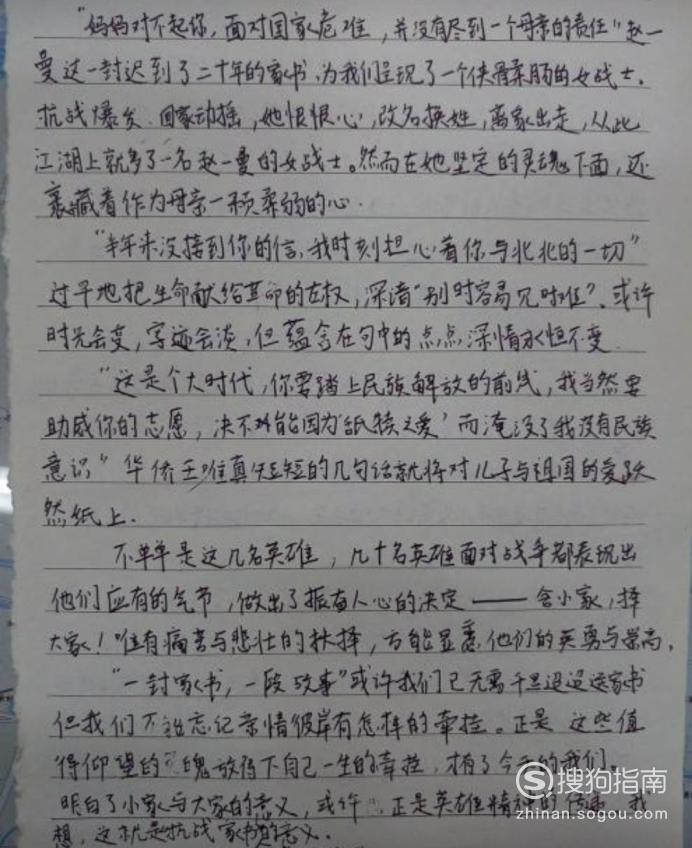 “妈妈对不起你，面对国家危难，并没有尽到一个母亲的责任”赵一
曼这一封迟到了二十年的家书，为我们呈现了一个侠骨柔肠的女战士。
抗战爆发，国家动摇，她恨恨心，改名换姓，离家出走，从此
江湖上就多了一名赵一曼的女战士。然而在她坚定的灵魂下面，还
裹藏着作为母亲一颗柔弱的心．
“半年来没接到你的信，我时刻担心着你与北北的一切”
过早地把生命献给革命的左权，深谙“别时容易见时难”。或许
时光会变，字迹会淡，但蕴含在句中的点点深情永恒不变．
“这是个大时代，你要踏上民族解放的前线，我当然要
助威你的志愿，决不能因为‘舐犊之爱’而淹没了我没有民族
意识”华侨王唯真短短的几句话就将对儿子与祖国的爱跃
然纸上．
不单单是这几名英雄，几十名英雄面对战争都表现出
他们应有的气节，做出了振奋人心的决定——舍小家，择
大家！惟有痛苦与悲壮的抉择，方能显悉他们的英勇与崇高．
“一封家书，一段故事”或许我们已无需千里迢迢送家书
但我们不能忘记亲情彼岸有怎样的牵挂。正是这些值
得仰望的魂放得下自己一生的牵挂，才有了今天的我们。
明白了小家与大家的意义，或许正是英雄精神的传递．我
想，这就是抗战家书的意义．
S 搜狗指南
zhinan.sogou.com